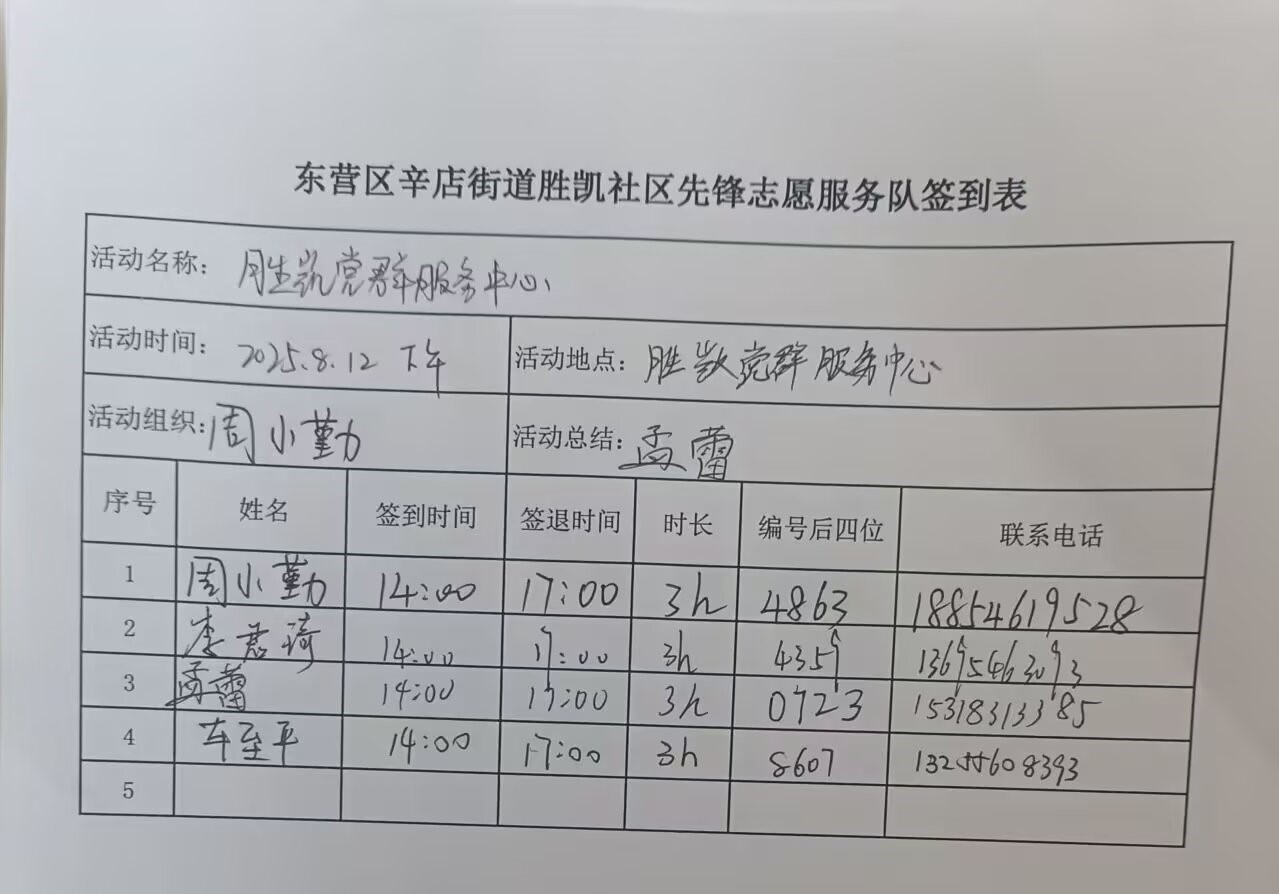 东营区辛店街道胜凯社区先锋志愿服务队签到表
活动名称: 胜凯党群服务中心
活动时间: 2025.8.12 下午 活动地点: 胜凯党群服务中心
活动组织: 周小勤 活动总结: 孟蕾
序号 姓名 签到时间 签退时间 时长 编号后四位 联系电话
1 周小勤 14:00 17:00 3h 4863 18854619528
2 李君琦 14:00 17:00 3h 4359 13695463093
3 孟蕾 14:00 17:00 3h 0723 15318313385
4 车至平 14:00 17:00 3h 8607
5